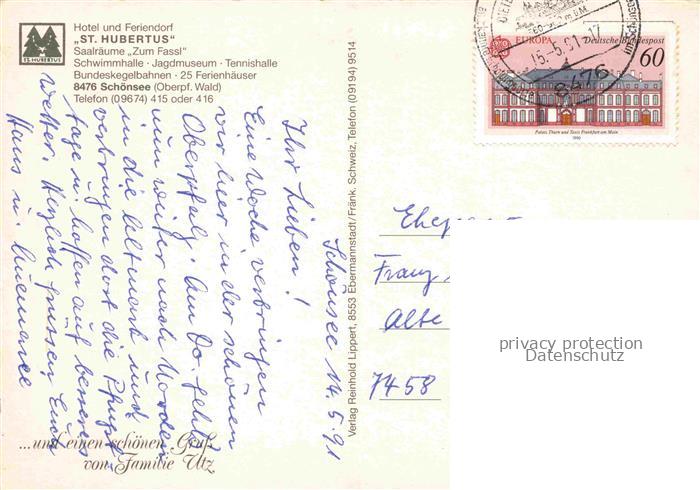 Hotel und Feriendorf
„ST. HUBERTUS"
Saalräume „Zum Fassl"
Schwimmhalle · Jagdmuseum · Tennishalle
Bundeskegelbahnen · 25 Ferienhäuser
8476 Schönsee (Oberpf. Wald)
Telefon (09674) 415 oder 416
ST. HUBERTUS
Schönsee 14.5.91
Ihr Lieben!
Eine Woche verbringen
wir hier in der schönen
Oberpfalz. Am Do. geht's
nun weiter nach Norden
in die Altmark und
verbringen dort die Pfingst-
tage u. hoffen auf besseres
Wetter. Herzlich grüssen Euch
Hans u. Annemarie
...und einen schönen Gruß
von Familie Utz
Verlag Reinhold Lippert, 8553 Ebermannstadt/Fränk. Schweiz, Telefon (09194) 9514
EUROPA Deutsche Bundespost
60
Palais Thurn und Taxis Frankfurt am Main
1990
15.-5.91-17
8476
Franz
Alte
7458
privacy protection
Datenschutz